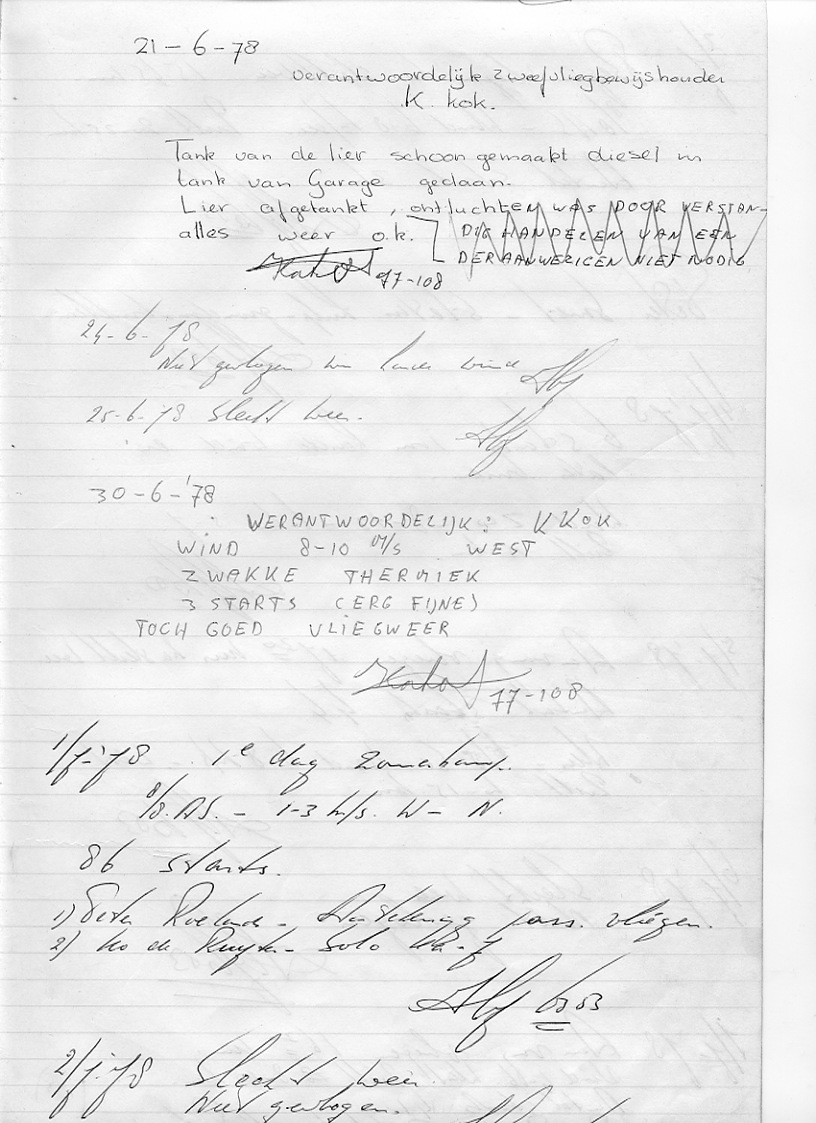 21-6-78
verantwoordelijk zweefvliegbewijshouder
K. Kok.
Tank van de lier schoongemaakt diesel in
tank van Garage gedaan.
Lier afgetankt, ontluchten WAS DOOR VERSTAN-
alles weer o.k. DIG HANDELEN VAN EEN
DER AANWEZIGEN NIET NODIG
77-108
24-6-78
Niet gevlogen harde wind
25-6-78 Slecht weer.
30-6-'78
VERANTWOORDELIJK: K KOK
WIND 8-10 M/S WEST
ZWAKKE THERMIEK
3 STARTS (ERG FIJNE)
TOCH GOED VLIEGWEER
77-108
1/7-'78 1e dag Zomerkamp.
8/8. AS. - 1-3 m/s. W - N.
86 starts.
1) Peter Roelands - pass. vliegen.
2) de Ruyter - Solo
2/7-'78 Slecht weer.
Niet gevlogen.